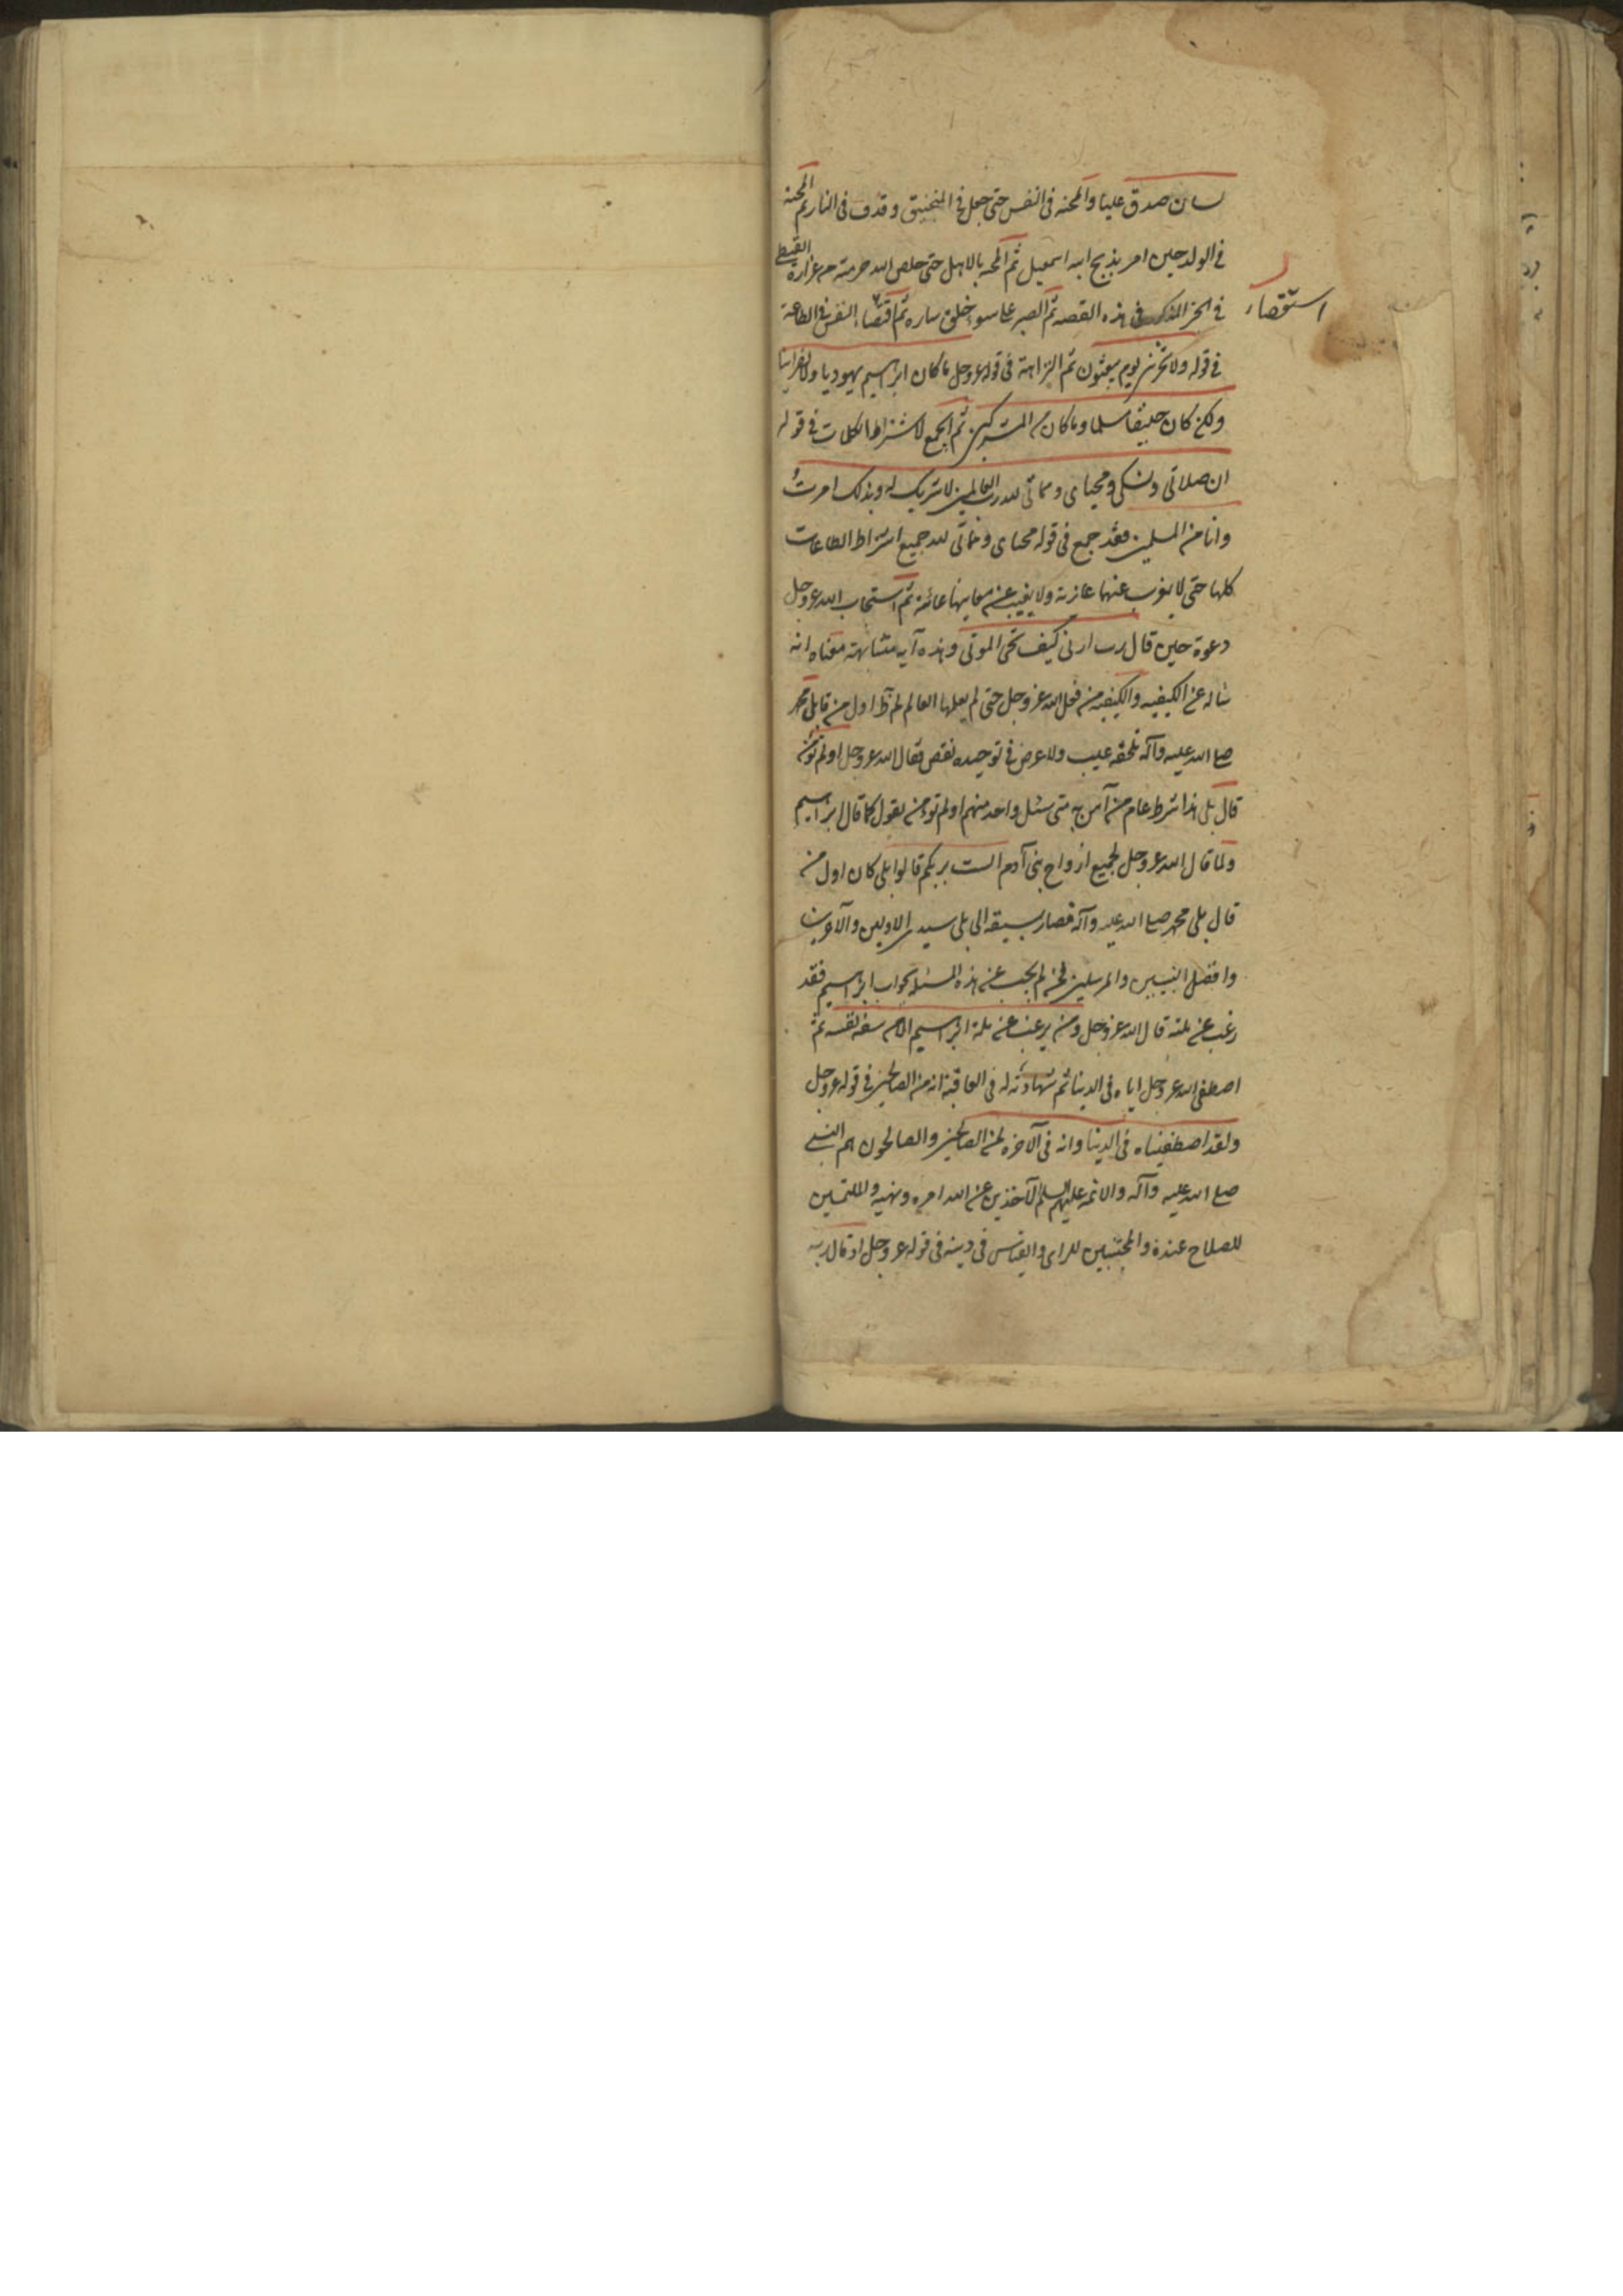 لسان صدق عليا والمحنة فى النفس حتى جعل فى المنجنيق وقذف فى النار ثم المحنة
فى الولد حين امر بذبح ابنه اسمعيل ثم المحنة بالاهل حتى خلص الله حرمته من عزازة القبطى
فى الخبر المذكور فى هذه القصه ثم الصبر على سوء خلق ساره ثم اقتصاء النفس فى الطاعة
استقصاء
فى قوله ولا تخزنى يوم يبعثون ثم النزاهة فى قوله عز وجل ما كان ابراهيم يهوديا ولا نصرانيا
ولكن كان حنيفا مسلما وما كان من المشركين ثم الجمع لاشتراط الكلمات فى قوله
ان صلاتى ونسكى ومحياى ومماتى لله رب العالمين لا شريك له وبذلك امرت
وانا من المسلمين فقد جمع فى قوله محياى ومماتى لله جميع اشتراط الطاعات
كلها حتى لا يعزب عنها عازبة ولا يغيب عن معانيها غائبة ثم استجاب الله عز وجل
دعوة حين قال رب ارنى كيف تحى الموتى وهذه آية متشابهة معناه انه
سأله عن الكيفيه والكيفيه من فعل الله عز وجل حتى لم يعلمها العالم لم
صلى الله عليه وآله يلحقه عيب ولا عرض فى توحيده نقص فقال الله عز وجل اولم تؤمن
قال بلى هذا شرط عام من آمن به متى سئل واحد منهم اولم تؤمن يقول كما قال ابراهيم
ولما قال الله عز وجل لجميع ارواح بنى آدم الست بربكم قالوا بلى كان اول من
قال بلى محمد صلى الله عليه وآله فصار بسبقه الى بلى سيد الاولين والآخرين
وافضل النبيين والمرسلين فمن لم يجب عن هذه المسئلة بجواب ابراهيم فقد
رغب عن ملته قال الله عز وجل ومن يرغب عن ملة ابراهيم الا من سفه نفسه ثم
اصطفى الله عز وجل اياه فى الدنيا ثم شهادته له فى العاقبة انه من الصالحين فى قوله عز وجل
ولقد اصطفيناه فى الدنيا وانه فى الآخرة لمن الصالحين والصالحون هم النبى
صلى الله عليه وآله والائمه عليهم السلم الآخذين عن الله امره ونهيه والملتمسين
للصلاح عنده والمجتنبين للراى والقياس فى دينه فى قوله عز وجل اذ قال ربه